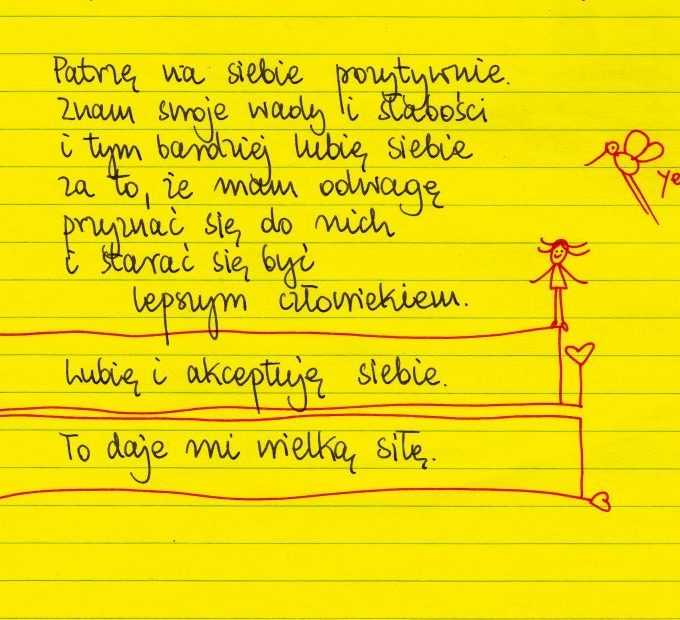 Patrzę na siebie pozytywnie.
Znam swoje wady i słabości
i tym bardziej lubię siebie
za to, że mam odwagę
przyznać się do nich
i starać się być
lepszym człowiekiem.
Lubię i akceptuję siebie.
To daje mi wielką siłę.